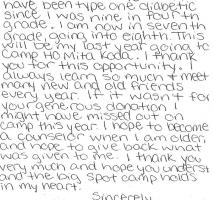 have been type one diabetic
since I was nine in fourth
grade. I am now in seventh
grade, going into eighth. This
will be my last year going to
camp Ho Mita Koda. I thank
you for this opportunity. I
always learn so much & meet
many new and old friends
every year. If it wasn't for
your generous donation I
might have missed out on
camp this year. I hope to become
a counselor when I am older,
and hope to give back what
was given to me. I thank you
very much and hope you underst
and the big spot camp holds
in my heart.
Sincerely